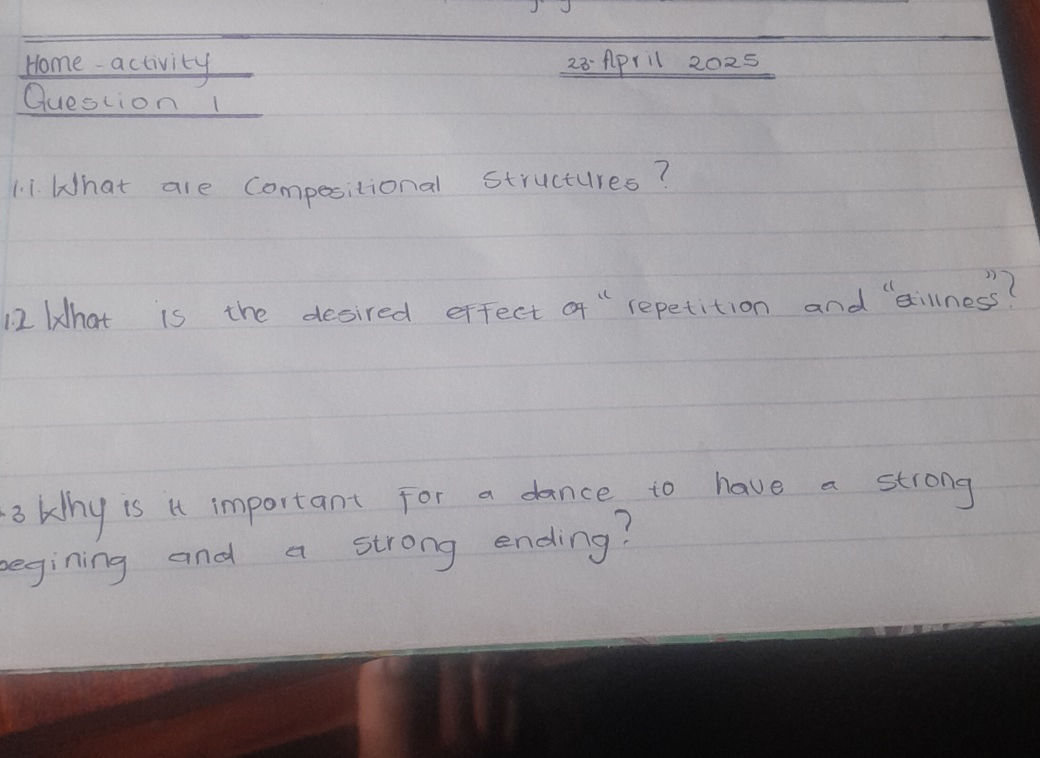 Home - activity
23 April 2025
Question 1
1.1. What are Compositional structures?
1.2 What is the desired effect of "repetition and "stillness"?
.3 Why is it important for a dance to have a strong
begining and a strong ending?